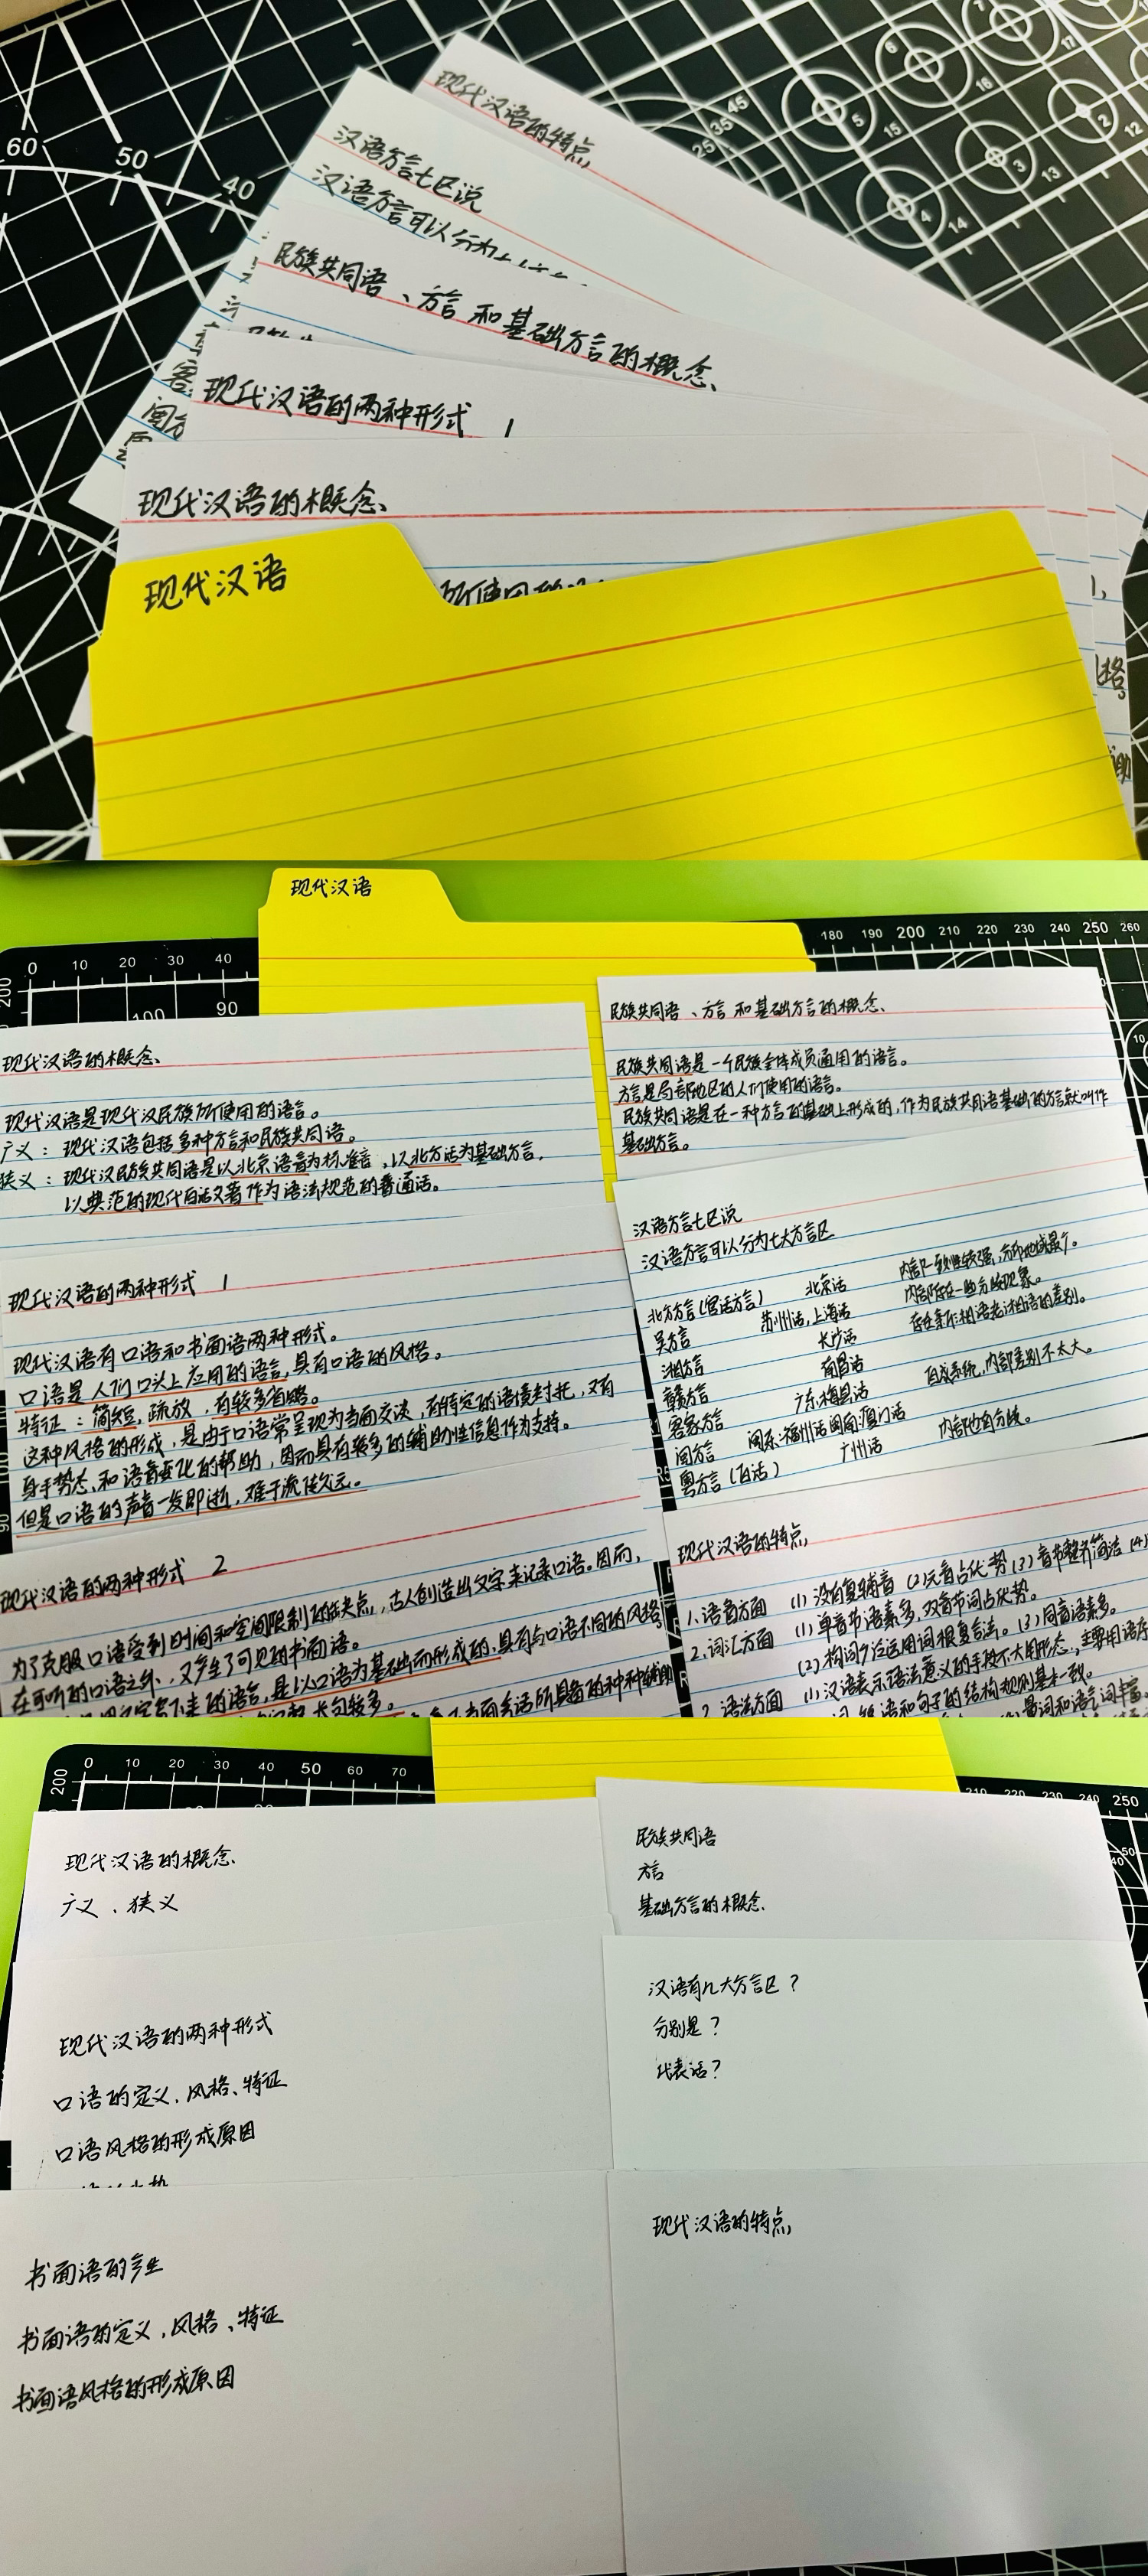 现代汉语的特点
汉语方言七区说
汉语方言可以分为
民族共同语、方言和基础方言的概念
现代汉语的两种形式 1
现代汉语的概念
现代汉语
现代汉语
现代汉语的概念
现代汉语是现代汉民族所使用的语言。
广义：现代汉语包括多种方言和民族共同语。
狭义：现代汉民族共同语是以北京语音为标准音，以北方话为基础方言，
以典范的现代白话文著作为语法规范的普通话。
现代汉语的两种形式 1
现代汉语有口语和书面语两种形式。
口语是人们口头上应用的语言，具有口语的风格。
特征：简短，疏放，有较多省略。
这种风格的形成，是由于口语常呈现为当面交谈，有特定的语境衬托，又有
身手势态、和语音变化的帮助，因而具有较多的辅助性信息作为支持。
但是口语的声音一发即逝，难于流传久远。
现代汉语的两种形式 2
为了克服口语受到时间和空间限制的缺点，古人创造出文字来记录口语。因而，
在可听的口语之外，又产生了可见的书面语。
用文字写下来的语言，是以口语为基础而形成的，具有与口语不同的风格
大句较多。
当面会话所具备的种种辅助
民族共同语、方言和基础方言的概念
民族共同语是一个民族全体成员通用的语言。
方言是局部地区的人们使用的语言。
民族共同语是在一种方言的基础上形成的，作为民族共同语基础的方言就叫作
基础方言。
汉语方言七区说
汉语方言可以分为七大方言区
北方方言（官话方言） 北京话 内部一致性较强，分布地域最广。
吴方言 苏州话，上海话 内部存在一些分歧现象。
湘方言 长沙话 存在新湘语老湘语的差别。
赣方言 南昌话
客家方言 广东梅县话 自成系统，内部差别不太大。
闽方言 闽东：福州话 闽南：厦门话
粤方言（白话） 广州话 内部也有分歧。
现代汉语的特点
1.语音方面 (1)没有复辅音 (2)元音占优势 (3)音节整齐简洁 (4)
2.词汇方面 (1)单音节语素多，双音节词占优势。
(2)构词广泛运用词根复合法。(3)同音语素多。
语法方面 (1)汉语表示语法意义的手段不大用形态，主要用语序
短语和句子的结构规则基本一致。
量词和语气词丰富。
现代汉语的概念
广义、狭义
现代汉语的两种形式
口语的定义，风格、特征
口语风格的形成原因
书面语的产生
书面语的定义，风格、特征
书面语风格的形成原因
民族共同语
方言
基础方言的概念
汉语有几大方言区？
分别是？
代表话？
现代汉语的特点